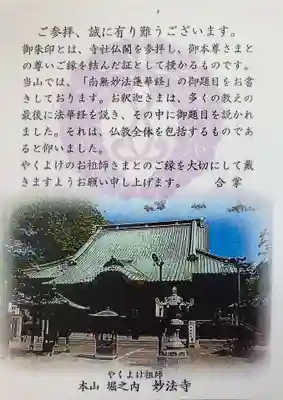 ご参拝、誠に有り難うございます。
御朱印とは、寺社仏閣を参拝し、御本尊さまと
の尊いご縁を結んだ証として授かるものです。
当山では、「南無妙法蓮華経」の御題目をお書
きしております。お釈迦さまは、多くの教えの
最後に法華経を説き、その中に御題目を説かれ
ました。それは、仏教全体を包括するものであ
ると仰いました。
やくよけのお祖師さまとのご縁を大切にして戴
きますようお願い申し上げます。 合掌
やくよけ祖師
本山 堀之内 妙法寺